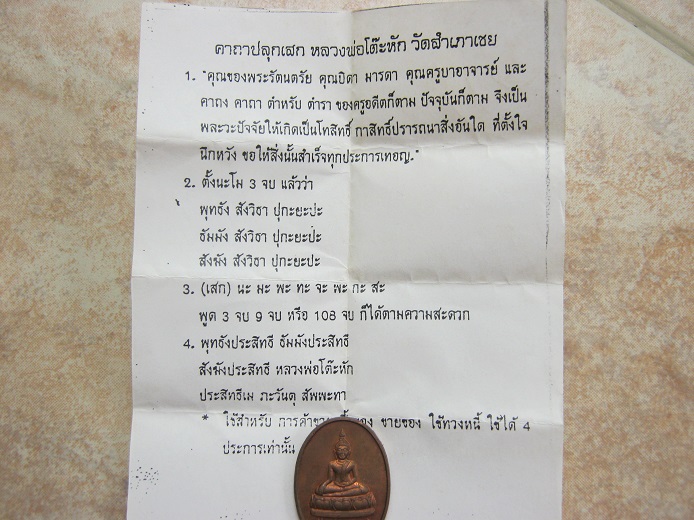 คาถาปลุกเสก หลวงพ่อโต๊ะหัก วัดสำเภาเชย
1. "คุณของพระรัตนตรัย คุณบิดา มารดา คุณครูบาอาจารย์ และ
คาถง คาถา ตำหรับ ตำรา ของครูอดีตก็ตาม ปัจจุบันก็ตาม จึงเป็น
พละวะปัจจัยให้เกิดเป็นโทสิทธิ์ กาสิทธิ์ปรารถนาสิ่งอันใด ที่ตั้งใจ
นึกหวัง ขอให้สิ่งนั้นสำเร็จทุกประการเทอญ."
2. ตั้งนะโม 3 จบ แล้วว่า
พุทธัง สังวิธา ปุกะยะปะ
ธัมมัง สังวิธา ปุกะยะปะ
สังฆัง สังวิธา ปุกะยะปะ
3. (เสก) นะ มะ พะ ทะ จะ พะ กะ สะ
พูด 3 จบ 9 จบ หรือ 108 จบ ก็ได้ตามความสะดวก
4. พุทธังประสิทธิ ธัมมังประสิทธิ
สังฆังประสิทธิ หลวงพ่อโต๊ะหัก
ประสิทธิเม ภะวันตุ สัพพะทา
* ใช้สำหรับ การค้าขาย ของ ขายของ ใช้ทวงหนี้ ใช้ได้ 4
ประการเท่านั้น